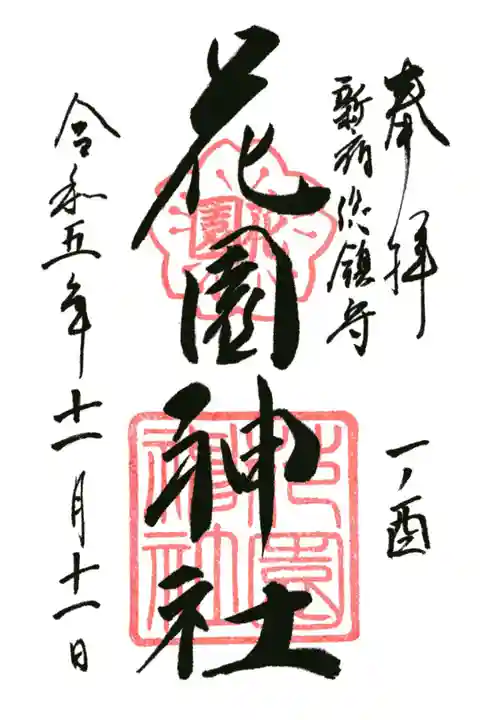 奉拝
新宿総鎮守
一ノ酉
花園神社
令和五年十一月十一日
花園
花園神社